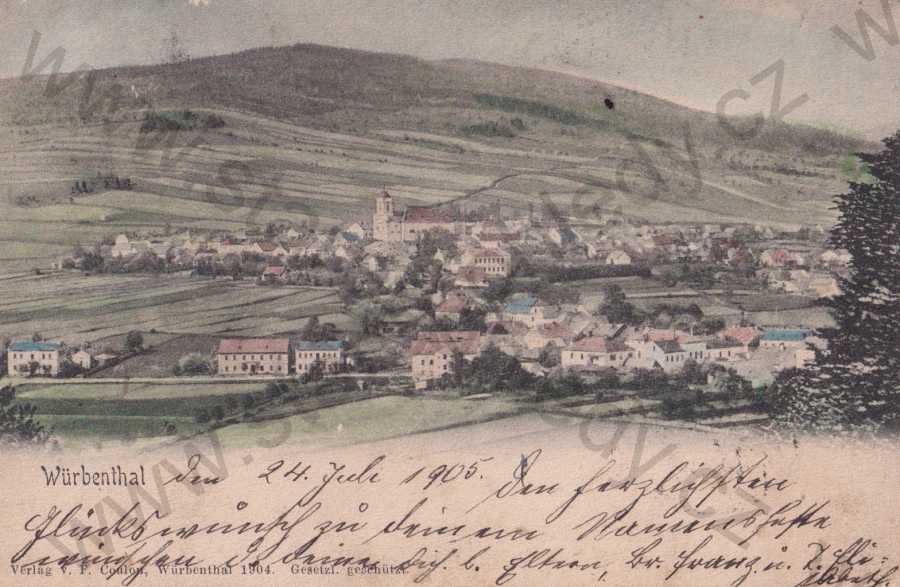 Würbenthal den 24. Juli 1905. Den herzlichsten
Glückswunsch zu deinem Namensfeste
wünschen d. deine dich l. Eltern, Br. Franz u. S. Eli-
sabeth.
Verlag v. F. Coulon, Würbenthal 1904. Gesetzl. geschützt.